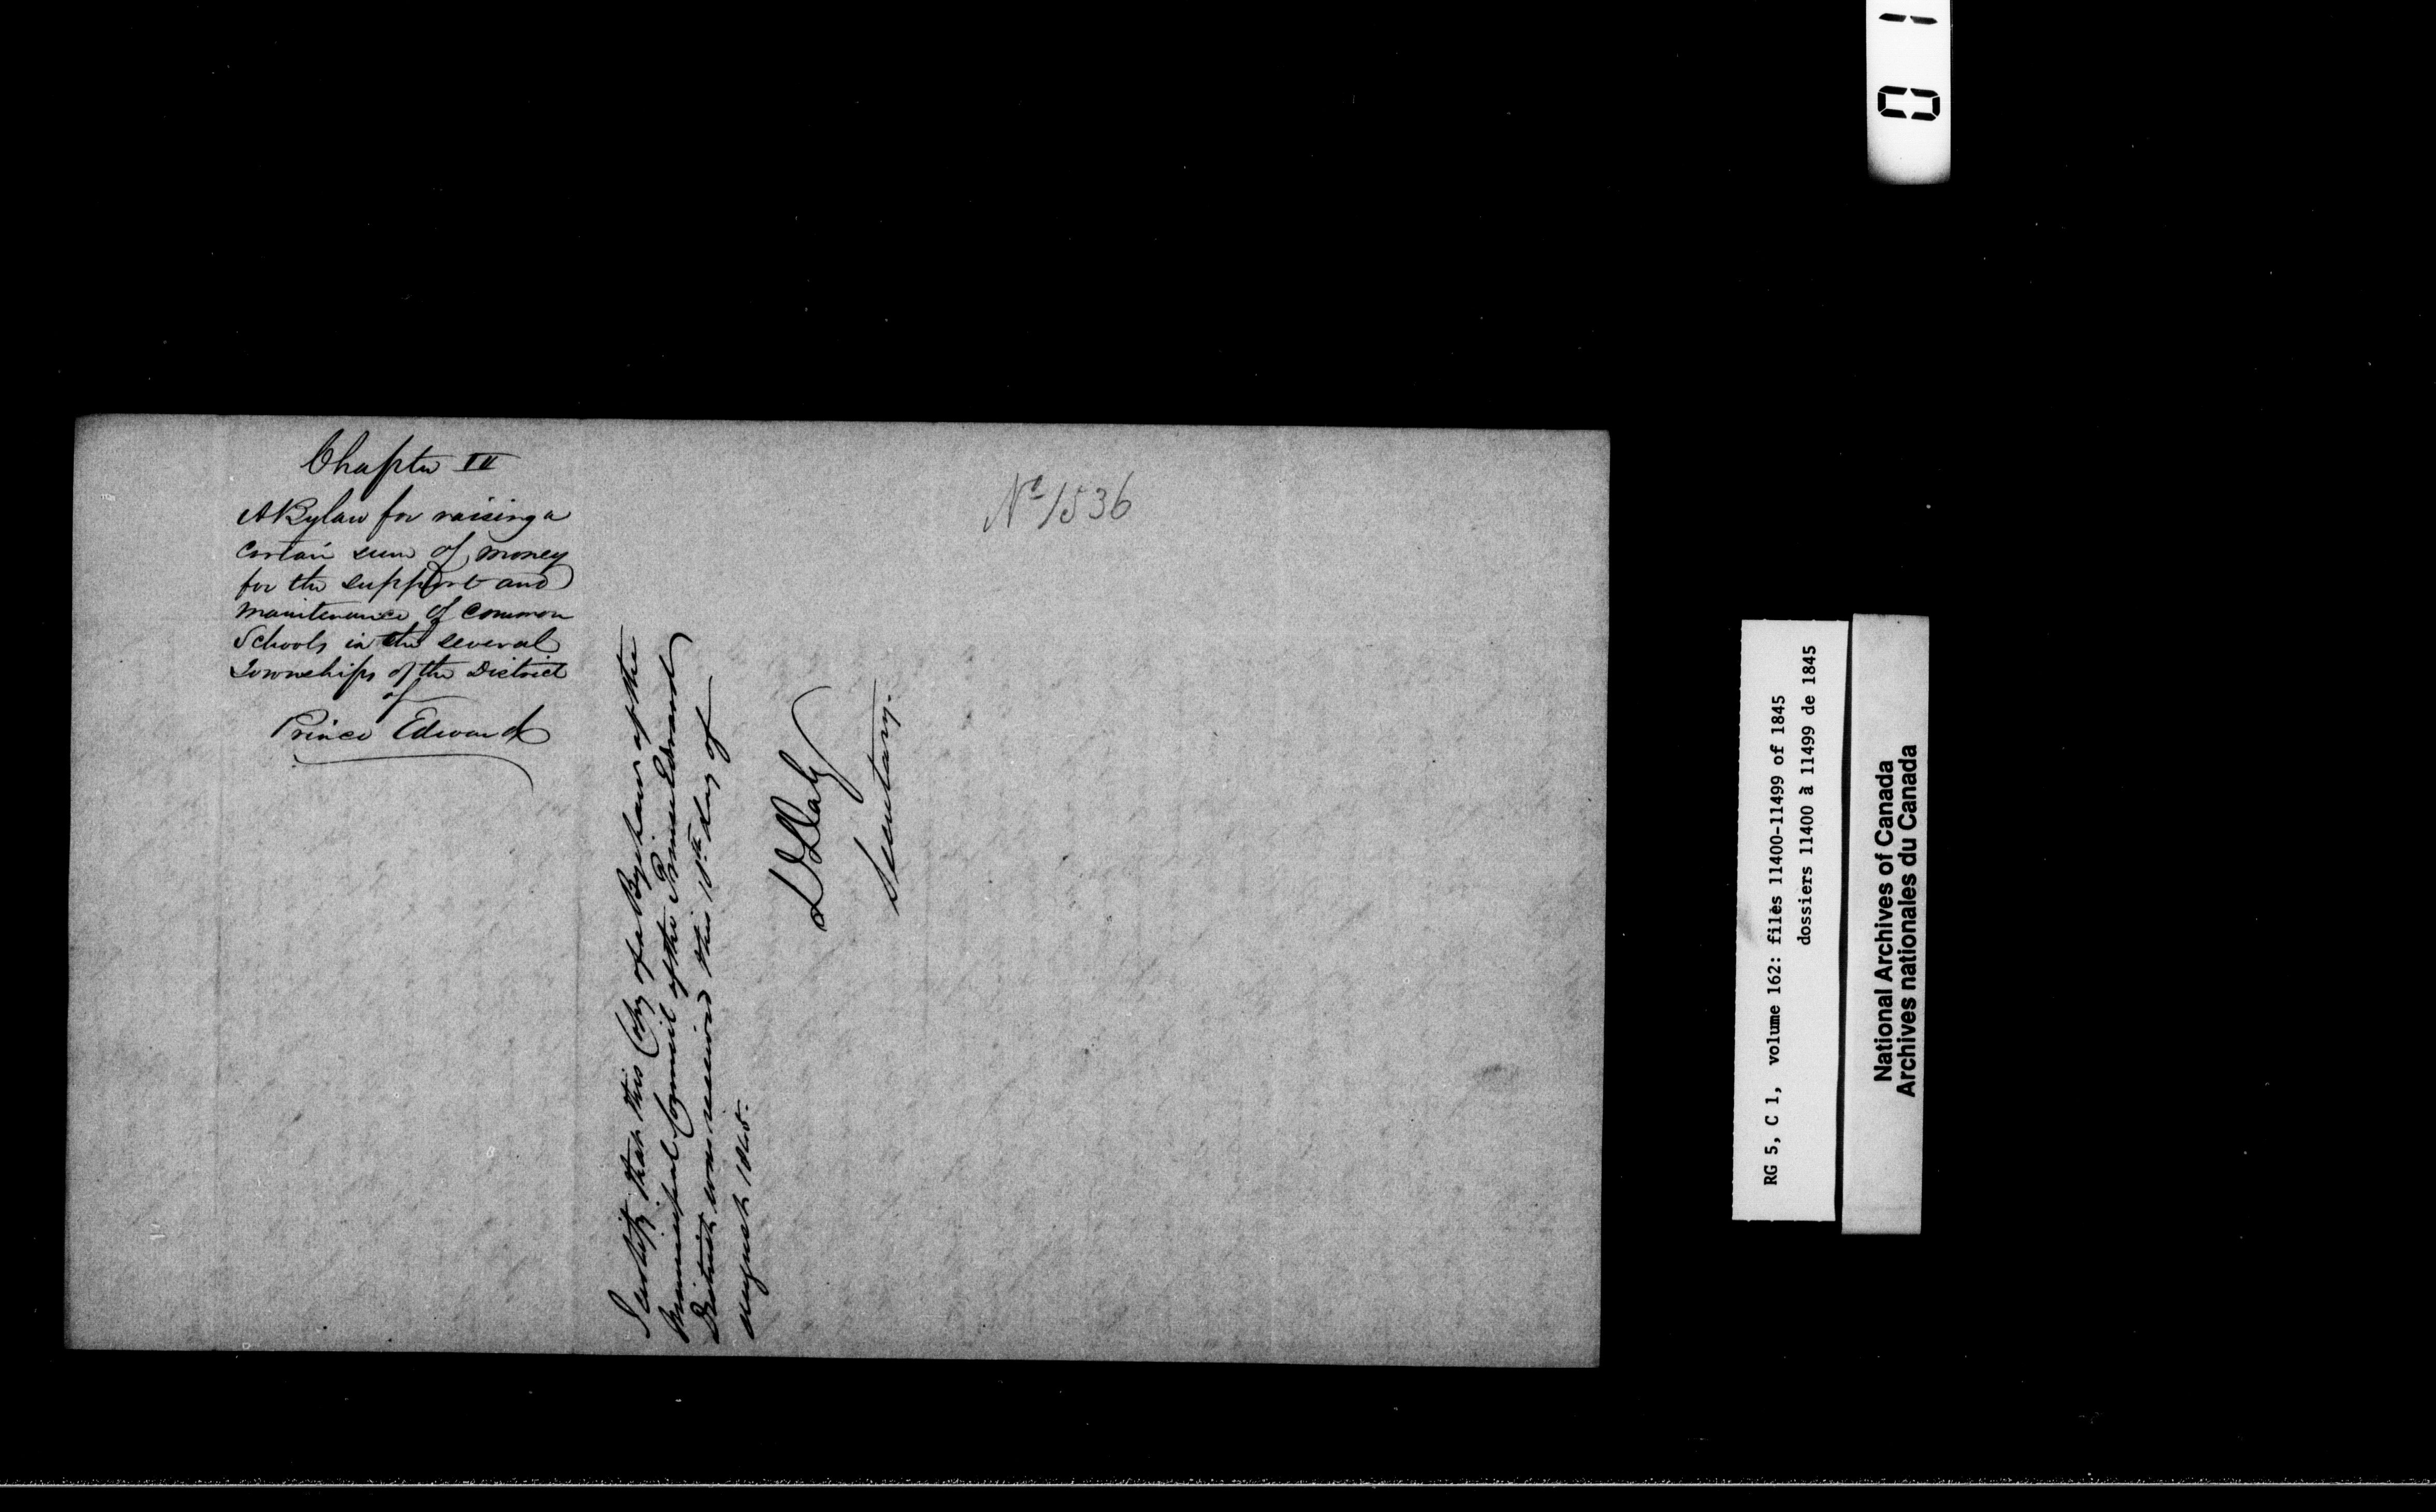 Chapter III
A Bylaw for raising a
certain sum of money
for the support and
maintenance of common
Schools in the several
Townships of the District
of
Prince Edward
I certify that this Copy of a Bye Law of the
Municipal Council of the Prince Edward
District was received this 18th day of
august 1845.
D Daly
Secretary.
No 1536
RG 5, C 1, volume 162: files 11400-11499 of 1845
dossiers 11400 à 11499 de 1845
National Archives of Canada
Archives nationales du Canada
0 1